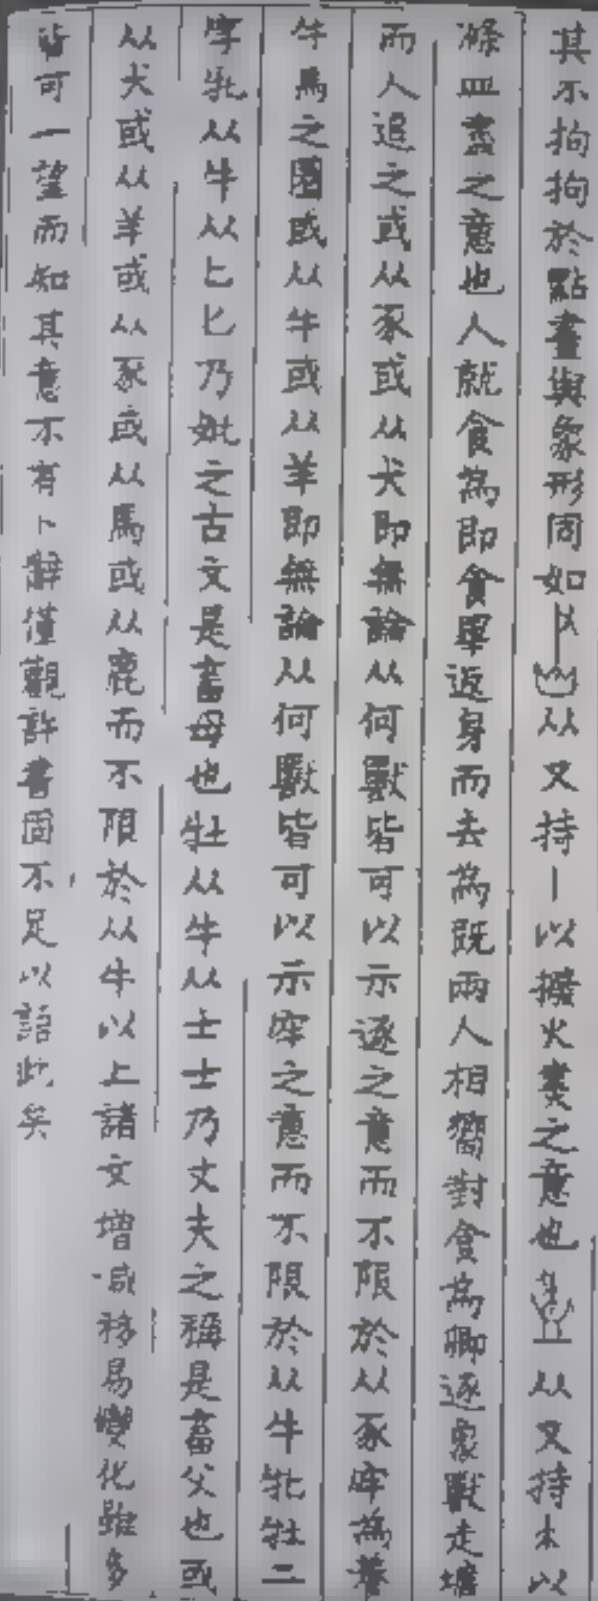 其不拘拘於點畫與象形固如从又持丨以撥火燼之意也从又持木以
滌皿盡之意也人就食為即食畢返身而去為既兩人相嚮對食為卿逐象獸走壙
而人追之或从豕或从犬即無論从何獸皆可以示逐之意而不限於从豕牢為養
牛馬之圂或从牛或从羊即無論从何獸皆可以示牢之意而不限於从牛牝牡二
字牝从牛从匕匕乃妣之古文是畜母也牡从牛从士士乃丈夫之稱是畜父也或
从犬或从羊或从豕或从馬或从鹿而不限於从牛以上諸文增減移易變化雖多
皆可一望而知其意不有卜辭僅觀許書固不足以語此矣